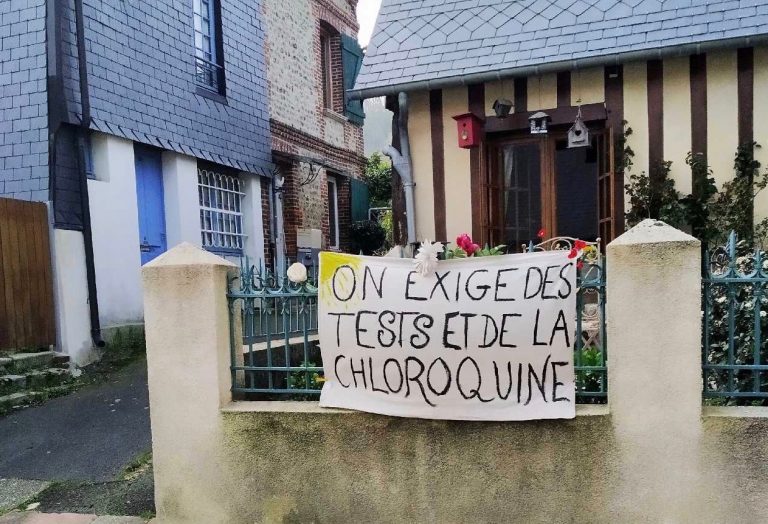 ON EXIGE DES
TESTS ET DE LA
CHLOROQUINE